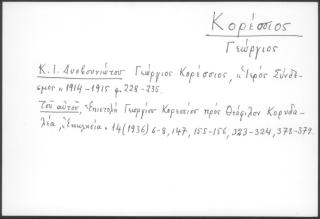 Κορέσσιος
Γεώργιος
Κ. Ι. Δυοβουνιώτου Γεώργιος Κορέσσιος, „Ιερός Σύνδε-
σμος" 1914-1915 φ. 228-235.
Τοῦ αὐτοῦ, Ἐπιστολὴ Γεωργίου Κορεσίου πρὸς Θεόφιλον Κορυδα-
λέα, „Ἐκκλησία" 14 (1936) 6-8, 147, 155-156, 323-324, 378-379.